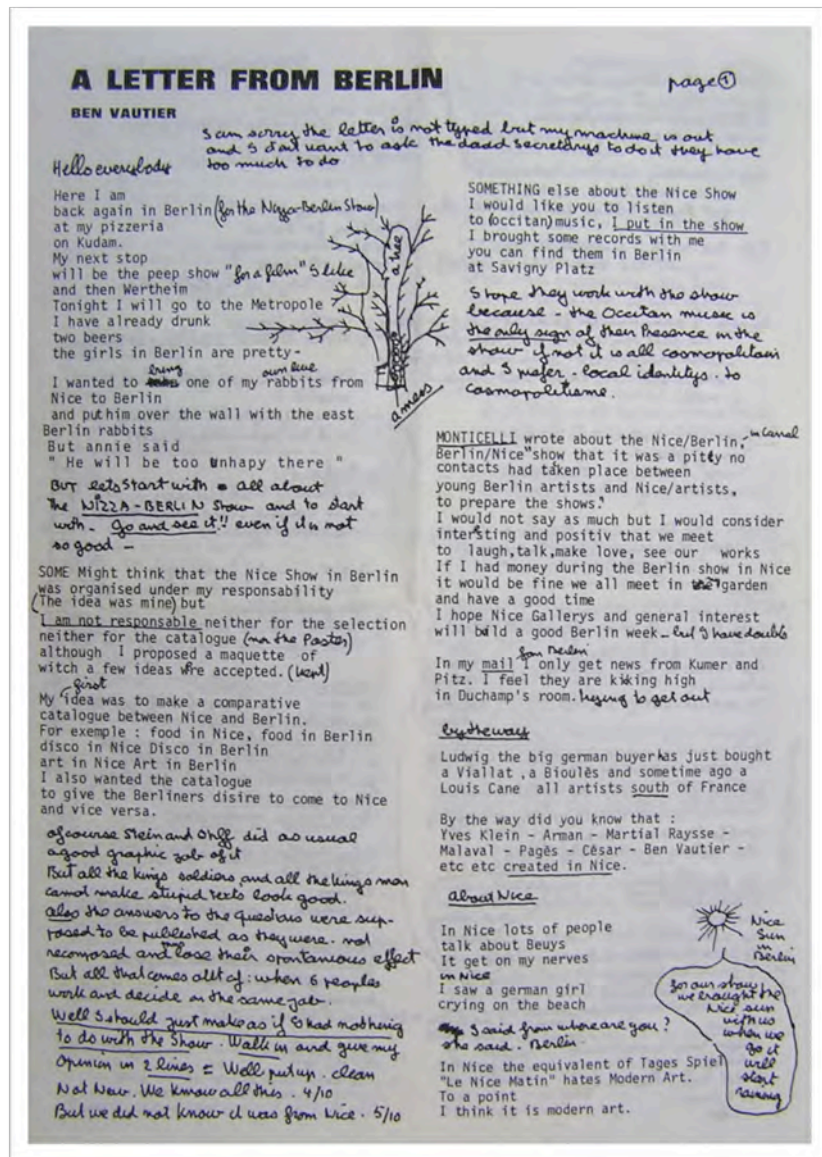 A LETTER FROM BERLIN
page 1
BEN VAUTIER
I am sorry the letter is not typed but my machine is out
and I dont want to ask the daad secretarys to do it they have
too much to do
Hello everybody
Here I am
back again in Berlin (for the Nizza-Berlin Show)
at my pizzeria
on Kudam.
My next stop
will be the peep show "for a film" I like
and then Wertheim
Tonight I will go to the Metropole
I have already drunk
two beers
the girls in Berlin are pretty-
I wanted to bring one of my own live rabbits from
Nice to Berlin
and put him over the wall with the east
Berlin rabbits
But annie said
" He will be too unhapy there "
a tree
a mess
But lets start with all about
the NIZZA-BERLIN Show and to start
with - Go and see it!! even if it is not
so good -
SOME Might think that the Nice Show in Berlin
was organised under my responsability
(The idea was mine) but
I am not responsable neither for the selection
neither for the catalogue (nor the Poster)
although I proposed a maquette of
witch a few ideas were accepted. (kept)
My first idea was to make a comparative
catalogue between Nice and Berlin.
For exemple : food in Nice, food in Berlin
disco in Nice Disco in Berlin
art in Nice Art in Berlin
I also wanted the catalogue
to give the Berliners disire to come to Nice
and vice versa.
of course Stein and Ohff did as usual
a good graphic job of it
But all the kings soldiers and all the kings man
cannot make stupid texts look good.
also the answers to the questions were sup-
posed to be published as they were - not
recomposed and lose their spontaneous effect
But all that comes out of : when 6 peoples
work and decide on the same job.
Well I should just make as if I had nothing
to do with the Show. Walk in and give my
opinion in 2 lines = Well put up. clean
Not New. We know all this. 4/10
But we did not know it was from Nice. 5/10
SOMETHING else about the Nice Show
I would like you to listen
to (occitan) music, I put in the show
I brought some records with me
you can find them in Berlin
at Savigny Platz
I hope they work with the show
because - the Occitan music is
the only sign of their Presence in the
show if not it is all cosmopolitain
and I prefer - local identitys - to
cosmopolitisme.
MONTICELLI wrote about the Nice/Berlin, "in Canal
Berlin/Nice" show that it was a pitty no
contacts had taken place between
young Berlin artists and Nice/artists,
to prepare the shows."
I would not say as much but I would consider
intersting and positiv that we meet
to laugh,talk,make love, see our works
If I had money during the Berlin show in Nice
it would be fine we all meet in garden
and have a good time
I hope Nice Gallerys and general interest
will build a good Berlin week - but I have doubts
In my mail from Berlin I only get news from Kumer and
Pitz. I feel they are kiking high
in Duchamp's room. trying to get out
by the way
Ludwig the big german buyer has just bought
a Viallat ,a Bioulès and sometime ago a
Louis Cane all artists south of France
By the way did you know that :
Yves Klein - Arman - Martial Raysse -
Malaval - Pagès - César - Ben Vautier -
etc etc created in Nice.
about Nice
In Nice lots of people
talk about Beuys
It get on my nerves
in Nice
I saw a german girl
crying on the beach
I said from where are you?
she said. Berlin
In Nice the equivalent of Tages Spiel
"Le Nice Matin" hates Modern Art.
To a point
I think it is modern art.
Nice
Sun
in
Berlin
for our show
we brought the
Nice sun
with us
when we
go it
will
start
raining